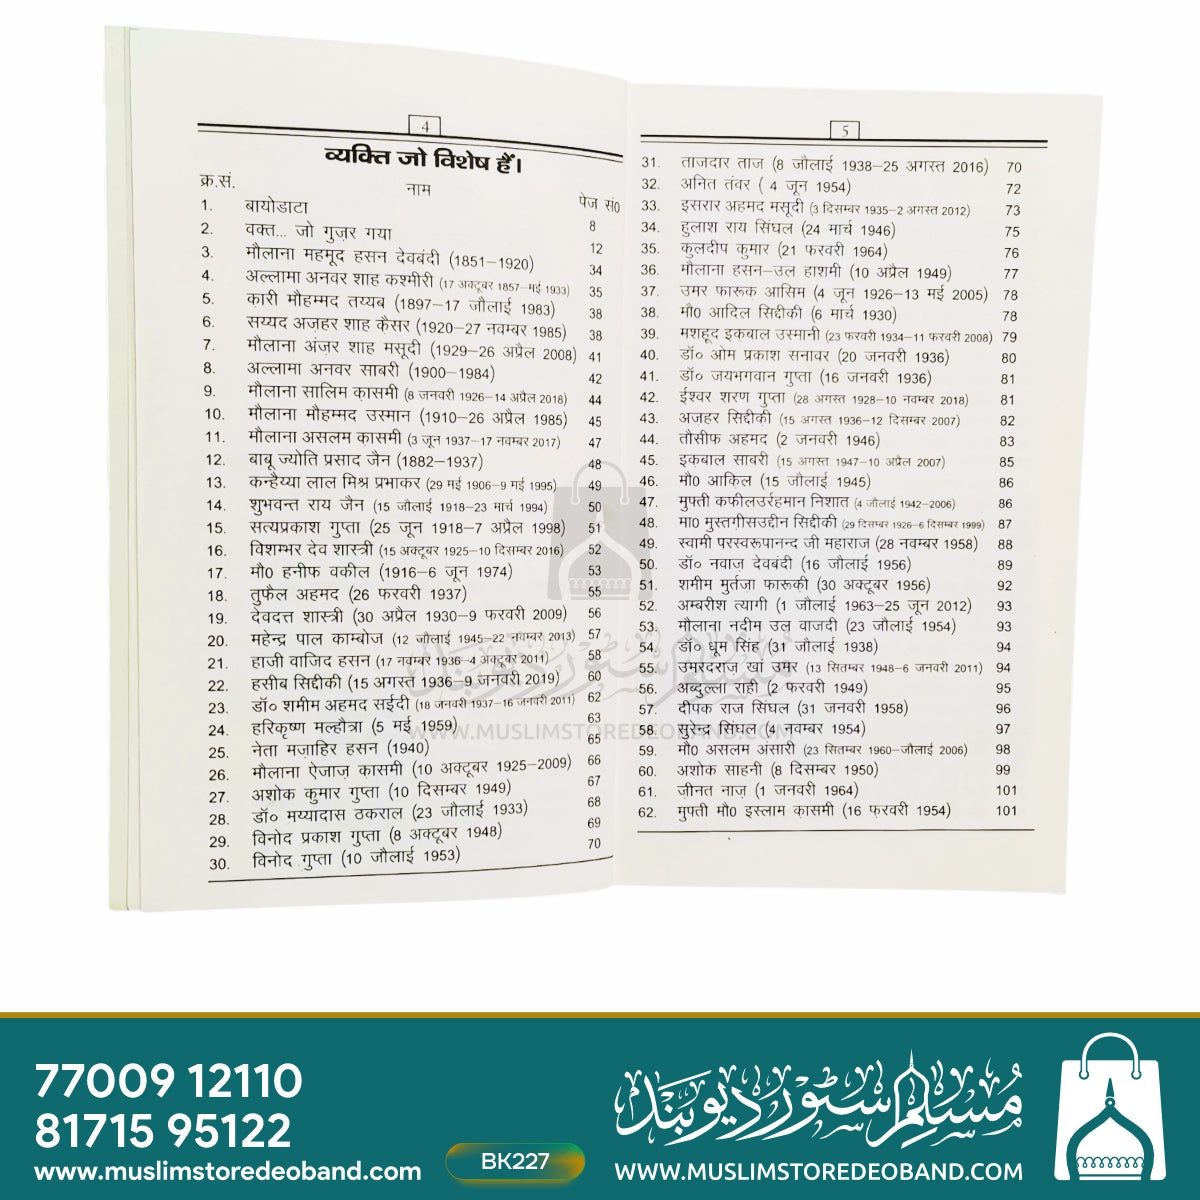 4
व्यक्ति जो विशेष हैं।
क्र.सं. नाम पेज सं0
1. बायोडाटा 8
2. वक्त... जो गुज़र गया 12
3. मौलाना महमूद हसन देवबंदी (1851–1920) 34
4. अल्लामा अनवर शाह कश्मीरी (17 अक्टूबर 1857–मई 1933) 35
5. कारी मौहम्मद तय्यब (1897–17 जौलाई 1983) 38
6. सय्यद अज़हर शाह क़ैसर (1920–27 नवम्बर 1985) 38
7. मौलाना अंज़र शाह मसूदी (1929–26 अप्रैल 2008) 41
8. अल्लामा अनवर साबरी (1900–1984) 42
9. मौलाना सालिम क़ासमी (8 जनवरी 1926–14 अप्रैल 2018) 44
10. मौलाना मौहम्मद उस्मान (1910–26 अप्रैल 1985) 45
11. मौलाना असलम क़ासमी (3 जून 1937–17 नवम्बर 2017) 47
12. बाबू ज्योति प्रसाद जैन (1882–1937) 48
13. कन्हैय्या लाल मिश्र प्रभाकर (29 मई 1906–9 मई 1995) 49
14. शुभवन्त राय जैन (15 जौलाई 1918–23 मार्च 1994) 50
15. सत्यप्रकाश गुप्ता (25 जून 1918–7 अप्रैल 1998) 51
16. विशम्भर देव शास्त्री (15 अक्टूबर 1925–10 दिसम्बर 2016) 52
17. मौ0 हनीफ वकील (1916–6 जून 1974) 53
18. तुफैल अहमद (26 फरवरी 1937) 55
19. देवदत्त शास्त्री (30 अप्रैल 1930–9 फरवरी 2009) 56
20. महेन्द्र पाल काम्बोज (12 जौलाई 1945–22 नवम्बर 2013) 57
21. हाजी वाजिद हसन (17 नवम्बर 1936–4 अक्टूबर 2011) 58
22. हसीब सिद्दीकी (15 अगस्त 1936–9 जनवरी 2019) 60
23. डॉ० शमीम अहमद सईदी (18 जनवरी 1937–16 जनवरी 2011) 62
24. हरिकृष्ण मल्हौत्रा (5 मई 1959) 63
25. नेता मज़ाहिर हसन (1940) 65
26. मौलाना ऐजाज़ क़ासमी (10 अक्टूबर 1925–2009) 66
27. अशोक कुमार गुप्ता (10 दिसम्बर 1949) 67
28. डॉ० मय्यादास ठकराल (23 जौलाई 1933) 68
29. विनोद प्रकाश गुप्ता (8 अक्टूबर 1948) 69
30. विनोद गुप्ता (10 जौलाई 1953) 70
5
31. ताजदार ताज (8 जौलाई 1938–25 अगस्त 2016) 70
32. अनित तंवर ( 4 जून 1954) 72
33. इसरार अहमद मसूदी (3 दिसम्बर 1935–2 अगस्त 2012) 73
34. हुलाश राय सिंघल (24 मार्च 1946) 75
35. कुलदीप कुमार (21 फरवरी 1964) 76
36. मौलाना हसन–उल हाशमी (10 अप्रैल 1949) 77
37. उमर फारूक़ आसिम (4 जून 1926–13 मई 2005) 78
38. मौ0 आदिल सिद्दीकी (6 मार्च 1930) 78
39. मशहूद इक़बाल उस्मानी (23 फरवरी 1934–11 फरवरी 2008) 79
40. डॉ० ओम प्रकाश सनावर (20 जनवरी 1936) 80
41. डॉ० जयभगवान गुप्ता (16 जनवरी 1936) 81
42. ईश्वर शरण गुप्ता (28 अगस्त 1928–10 नवम्बर 2018) 81
43. अज़हर सिद्दीक़ी (15 अगस्त 1936–12 दिसम्बर 2007) 82
44. तौसीफ अहमद (2 जनवरी 1946) 83
45. इक़बाल साबरी (15 अगस्त 1947–10 अप्रैल 2007) 85
46. मौ0 आक़िल (15 जौलाई 1945) 86
47. मुफ्ती कफीलउर्रहमान निशात (4 जौलाई 1942–2006) 86
48. मा0 मुस्तग़ीसउद्दीन सिद्दीकी (29 दिसम्बर 1926–6 दिसम्बर 1999) 87
49. स्वामी परस्वरूपानन्द जी महाराज (28 नवम्बर 1958) 88
50. डॉ० नवाज़ देवबंदी (16 जौलाई 1956) 89
51. शमीम मुर्तज़ा फारूकी (30 अक्टूबर 1956) 92
52. अम्बरीश त्यागी (1 जौलाई 1963–25 जून 2012) 93
53. मौलाना नदीम उल वाजदी (23 जौलाई 1954) 93
54. डॉ० धूम सिंह (31 जौलाई 1938) 94
55. उमरदराज़ खां उमर (13 सितम्बर 1948–6 जनवरी 2011) 94
56. अब्दुल्ला राही (2 फरवरी 1949) 95
57. दीपक राज सिंघल (31 जनवरी 1958) 96
58. सुरेन्द्र सिंघल (4 नवम्बर 1954) 97
59. मौ0 असलम अंसारी (23 सितम्बर 1960–जौलाई 2006) 98
60. अशोक साहनी (8 दिसम्बर 1950) 99
61. ज़ीनत नाज़ (1 जनवरी 1964) 101
62. मुफ्ती मौ0 इस्लाम क़ासमी (16 फ़रवरी 1954) 101
مسلم سٹور دیوبند
WWW.MUSLIMSTOREDEOBAND.COM
77009 12110
81715 95122
www.muslimstoredeoband.com
BK227
مسلم سٹور دیوبند
WWW.MUSLIMSTOREDEOBAND.COM